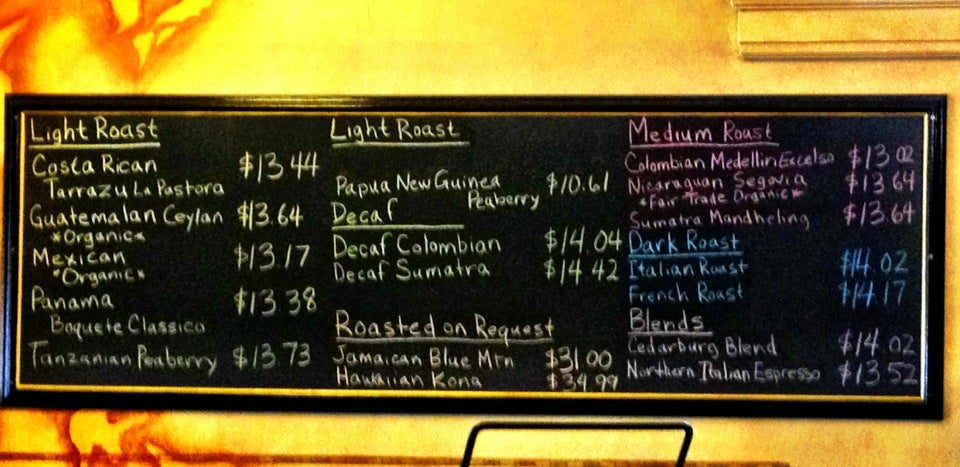 Light Roast
Costa Rican $13.44
Tarrazu La Pastora
Guatemalan Ceylan $13.64
*Organic*
Mexican $13.17
*Organic*
Panama $13.38
Boquete Classico
Tanzanian Peaberry $13.73
Light Roast
Papua New Guinea $10.61
Peaberry
Decaf
Decaf Colombian $14.04
Decaf Sumatra $14.42
Roasted on Request
Jamaican Blue Mtn $31.00
Hawaiian Kona $34.99
Medium Roast
Colombian Medellin Excelso $13.02
Nicaraguan Segovia $13.64
*Fair Trade Organic*
Sumatra Mandheling $13.64
Dark Roast
Italian Roast $14.02
French Roast $14.17
Blends
Cedarburg Blend $14.02
Northern Italian Espresso $13.52